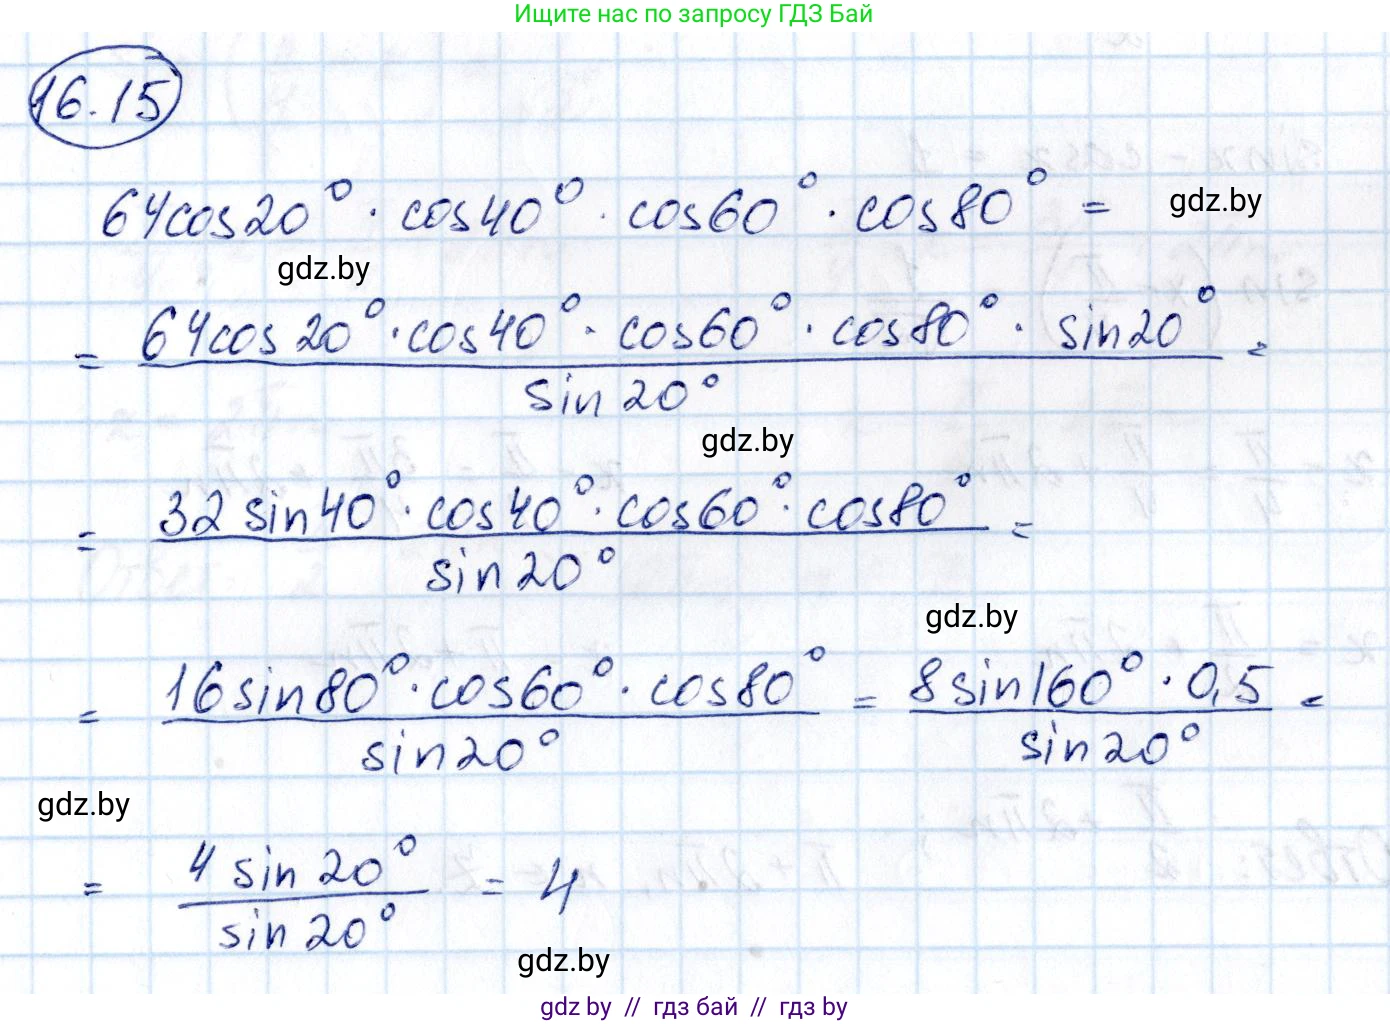 Ищите нас по запросу ГДЗ Бай
16.15
64cos20° · cos40° · cos60° · cos80° =
gdz.by
gdz.by
= 64cos20° · cos40° · cos60° · cos80° · sin20° =
sin20°
gdz.by
= 32 sin40° · cos40° · cos60° · cos80° =
sin20°
gdz.by
= 16sin80° · cos60° · cos80° = 8sin160° · 0,5 =
sin20° sin20°
gdz.by
= 4 sin20° = 4
sin20°
gdz.by
gdz by // гдз бай // гдз by